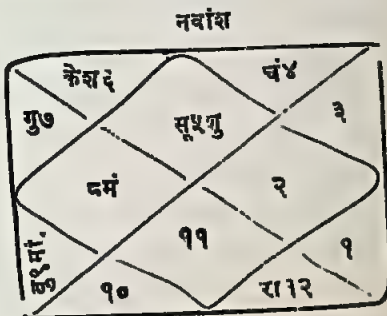 नवांश
केश६ चं४
गु७ सू५शु ३
८मं २
बु९मां. ११ १
१० रा१२